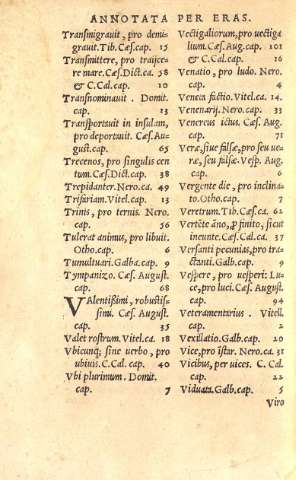 ANNOTATA PER ERAS.
Transmigrauit, pro demi-
grauit. Tib. Cæs. cap. 15
Transmittere, pro traijce-
re mare. Cæs. Dict. ca. 58
& C. Cal. cap. 10
Transnominauit. Domit.
cap. 13
Transportauit in insulam,
pro deportauit. Cæs. Au-
gust. cap. 65
Trecenos, pro singulis cen
tum. Cæs. Dict. cap. 38
Trepidanter. Nero. ca. 49
Trifariam. Vitel. cap. 13
Trinis, pro ternis. Nero.
cap. 56
Tulerat animus, pro libuit.
Otho. cap. 6
Tumultuari. Galba. cap. 9
Tympanizo. Cæs. August.
cap. 68
VAlentißimi, robustis-
simi. Cæs. August.
cap. 35
Valet rostrum. Vitel. ca. 18
Vbicunq; sine verbo, pro
vbiuis. C. Cal. cap. 40
Vbi plurimum. Domit.
cap. 7
Vectigaliorum, pro vectiga
lium. Cæs. Aug. cap. 101
& C. Cal. cap. 16
Venatio, pro ludo. Nero.
cap. 4
Venex factio. Vitel. ca. 14.
Venenarij. Nero. cap. 33
Venereus ictus. Cæs. Aug.
cap. 71
Veræ, siue falsæ, pro seu ve-
ræ, seu falsæ. Vesp. Aug.
cap. 6
Vergente die, pro inclina-
to. Otho. cap. 7
Veretrum. Tib. Cæs. ca. 62
Vertēte āno, ꝓ finito, sicut
ineunte. Cæs. Cal. ca. 37
Versanti pecunias, pro tra-
ctanti. Galb. cap. 9
Vespere, pro vesperi: Lu-
ce, pro luci. Cæs. August.
cap. 94
Veteramentarius. Vitell.
cap. 2
Vexillatio. Galb. cap. 20
Vice, pro īstar. Nero. ca. 31
Vicibus, per vices. C. Cal.
cap. 22
Viduata. Galb. cap. 5
Viro